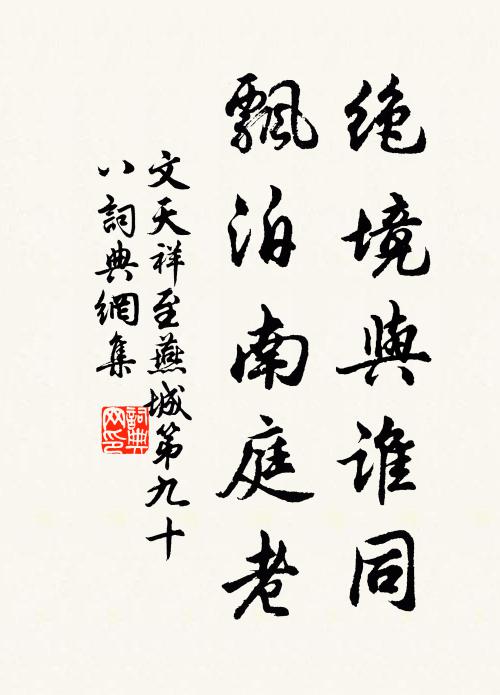 绝境與誰同
飄泊南庭老
文天祥至燕城第九十
八詞典網集
詞典
网印